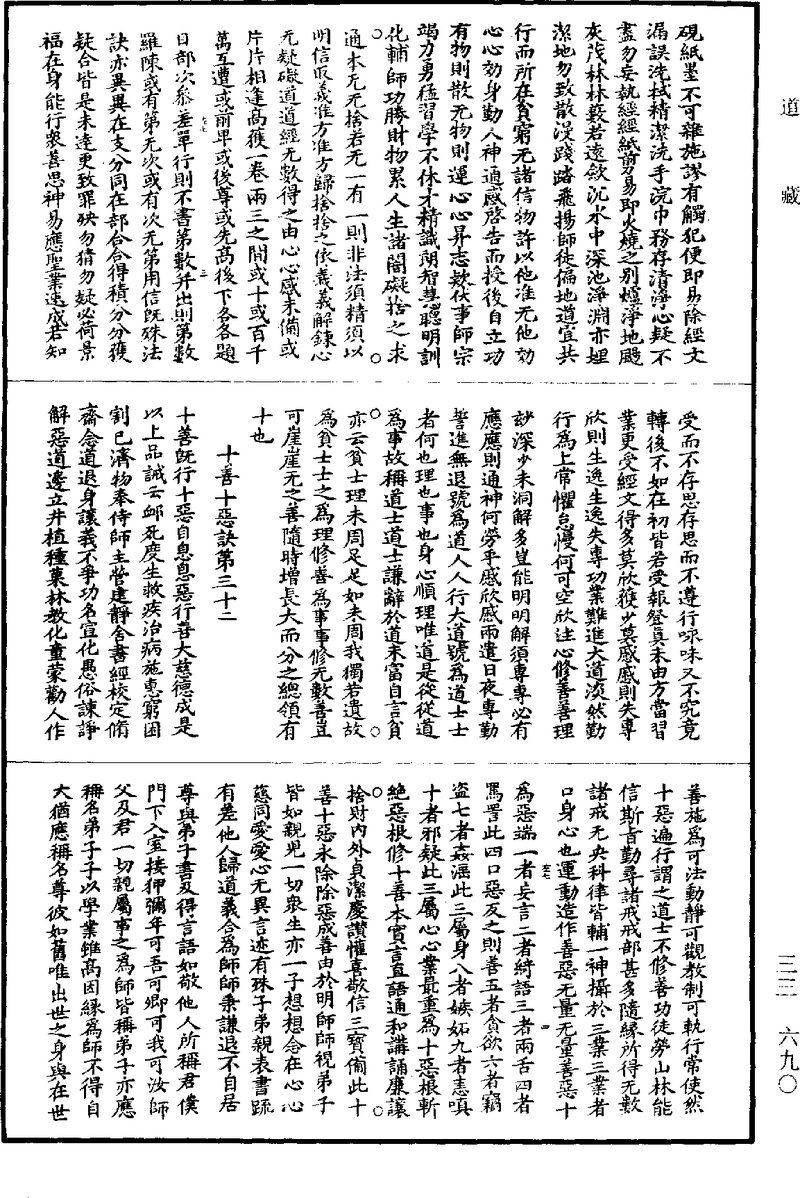 道藏
三三 六九〇
硯紙墨不可雜施謬有觸犯便即易除經文
漏誤洗拭精潔洗手浣巾務存清淨心疑不
盡勿妄執經經紙煎易即火燒之別爐淨地颺
灰茂林林藪若遠歛沉水中深池淨淵亦埋
潔地勿致散漫踐踏飛揚師徒偏地道宜共
行而所在貧窮无諸信物許以他准无他効
心心効身勤人神通感啓告而授後自立功
有物則散无物則運心心昇志欵伏事師宗
竭力勇猛習學不休才精識朗智慧聰明訓
化輔師功勝財物累人生諸闇礙捨之求
通本无无捨若无一有一則非法須精須以
明信取義准方准方歸捨捨之依義義解鍊心
无疑礙道道經无數得之由心心感未備或
片片相逢高獲一卷兩三之間或十或百千
萬互遭或前卑或後尊或先高後下各各題
目部次叅差單行則不書第數并出則第數
羅陳或有第无次或有次无第用信旣殊法
訣亦異異在支分同在部合合得積分分獲
疑合皆是未達更致罪殃勿猜勿疑必荷景
福在身能行衆善思神易應聖業速成若知
受而不存思存思而不遵行咏味又不究竟
轉後不如在初皆若受報登真未由方當習
業更受經文得多莫欣獲少莫慼慼則失專
欣則生逸生逸失專功業難進大道淡然勤
行爲上常懼怠慢何可空欣注心修善善理
玅深少未洞解多豈能明明解須專專必有
應應則通神何勞乎慼欣慼兩遣日夜專勤
誓進無退號爲道人人行大道號爲道士士
者何也理也事也身心順理唯道是從從道
爲事故稱道士道士謙辭於道未富自言貧
亦云貧士理未周足足如未周我獨若遺故
爲貧士士之爲理修善爲事事修无數善豈
可崖崖无之善隨時增長大而分之總領有
十也
十善十惡訣第三十二
十善旣行十惡自息息惡行善大慈德成是
以上品誡云卹死度生救疾治病施惠窮困
割己濟物奉侍師主營建靜舍書經校定脩
齋念道退身讓義不爭功名宣化愚俗諫諍
解惡道邊立井植種菓林教化童蒙勸人作
善施爲可法動靜可觀教制可軌行常使然
十惡遍行謂之道士不修善功徒勞山林能
信斯旨勤尋諸戒戒部甚多隨緣所得无數
諸戒无央科律皆輔一神攝於三業三業者
口身心也運動造作善惡无量无量善惡十
爲惡端一者妄言二者綺語三者兩舌四者
罵詈此四口惡反之則善五者貪欲六者竊
盜七者姦淫此三屬身八者嫉妬九者恚嗔
十者邪疑此三屬心心業最重爲十惡根斬
絕惡根修十善本實言直語通和講誦廉讓
捨財內外貞潔慶讚懽喜敬信三寶備此十
善十惡永除除惡成善由於明師師視弟子
皆如親兒一切衆生亦一子想想念在心心
慈同愛愛心无異言迹有殊子弟親表書踈
有差他人歸道義合爲師師秉謙退不自居
尊與弟子書及得言語如敬他人所稱君僕
門下入室接狎彌年可吾可卿可我可汝師
父及君一切親屬事之爲師皆稱弟子亦應
稱名弟子子以學業雖高因緣爲師不得自
大猶應稱名尊彼如舊唯出世之身與在世